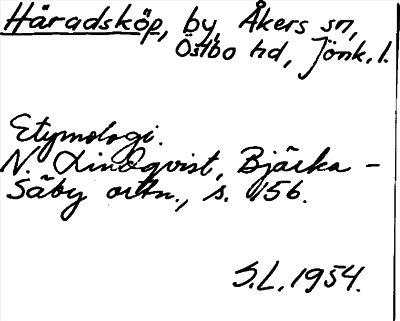 Häradsköp, by, Åkers sn,
Östbo hd, Jönk. l.
Etymologi.
N. Lindqvist, Bjärka -
Säby ortn., s. 156.
S.L. 1954.